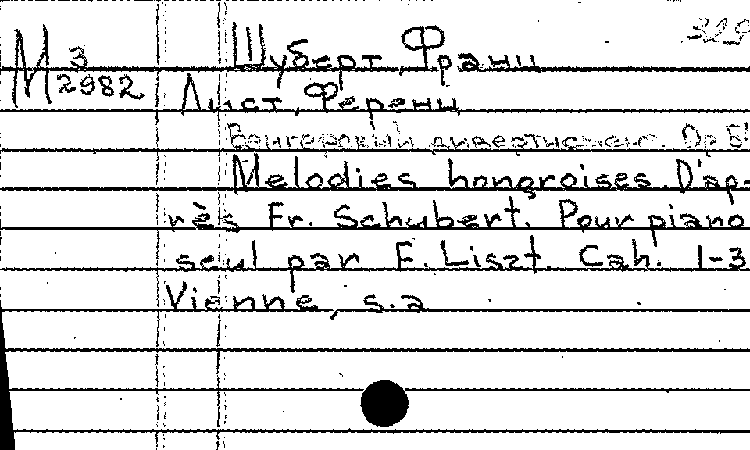 М 3/2982
Шуберт, Франц
Лист, Ференц
Венгерский дивертисмент. Ор
Melodies hongroises. D'ap-
rès Fr. Schubert. Pour piano
seul par F. Liszt. Cah. 1-3
Vienne, s.a